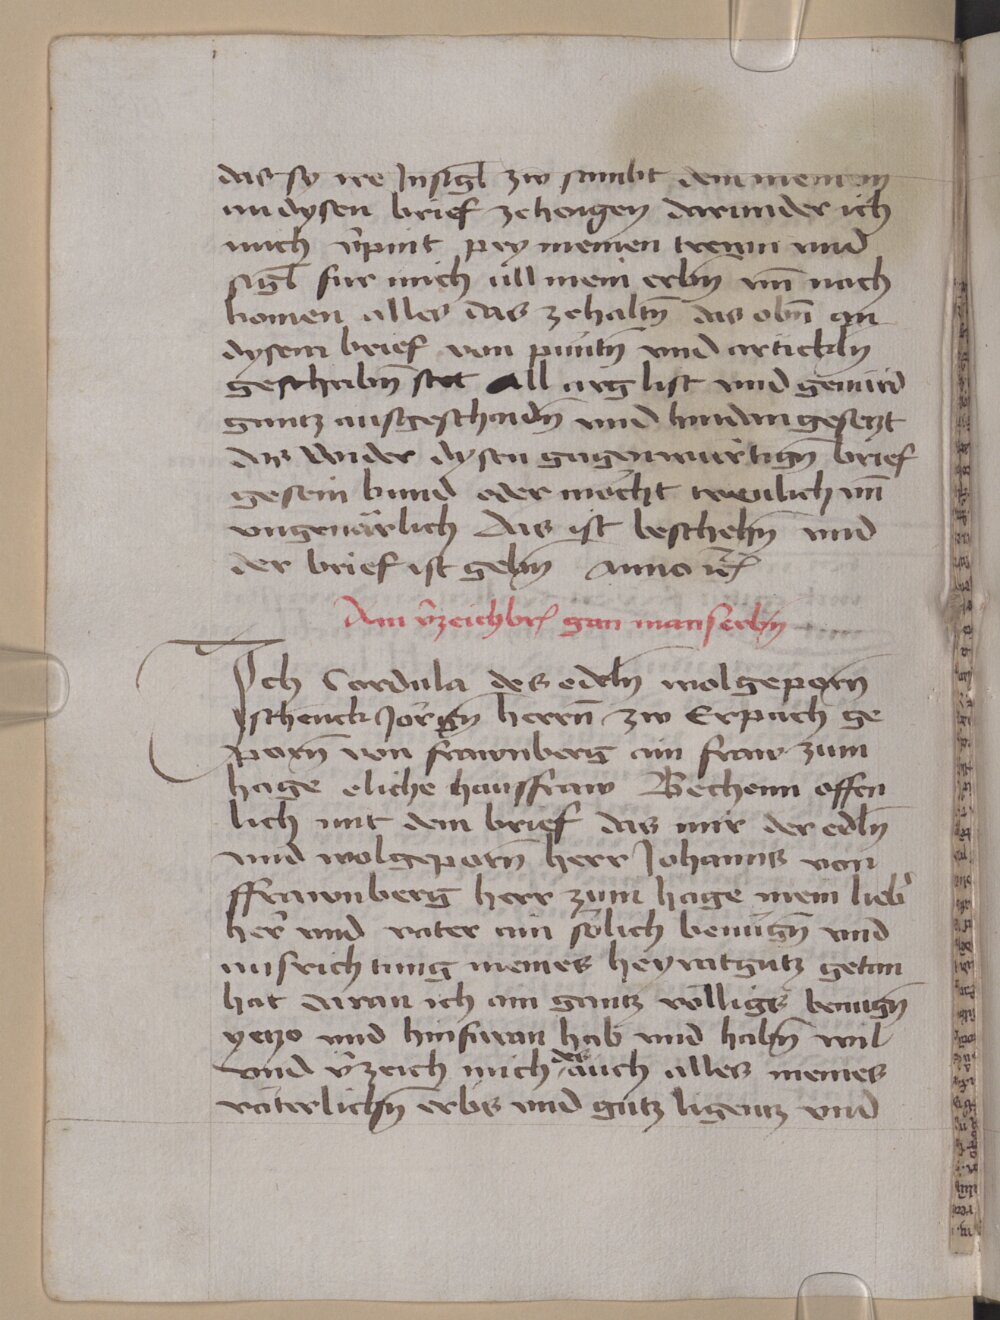 das sy ire Insigl zw sambt dem meinem
an dysen brief zehengen darunder ich
mich v̄pint pey meinen trewn vnd
sigl fur mich all mein erbn̄ vn̄ nach
komen alles das zehaltn̄ das obn̄ an
dysem brief von puntn̄ vnd artickln̄
geschribn̄ stet All arg list vnd geuärd
gantz ausgeschaidn̄ vnd hindan gesetzt
das wider dysen gagenwurtign̄ brief
gesein kund oder möcht trewlich vn̄
vngeuärlich Das ist beschehn̄ vnd
der brief ist gebn̄ Anno ꝛc
Am v̄zeichbrf gan manserbn̄
Ich Cordula des edeln̄ wolgeporn̄
schenck Jörgn̄ herrn̄ zw Erpach ge
porn̄ von frawnberg ain fraw zum
hage eliche hausfraw Bechenn offen
lich mit dem brief das mir der edln̄
vnd wolgeporn̄ herr Johanns von
ffrawnberg herr zum hage mein lieb̄
her̄ vnd vater ain sölich benügn̄ vnd
ausrichtung meines heyratgutz getan
hat daran ich ain gantz völligs benügn̄
yetzo vnd hinfuran hab vnd habn̄ wil
vnd v̄zeich mich des auch alles meines
väterlichn̄ erbs vnd gutz ligentz vnd